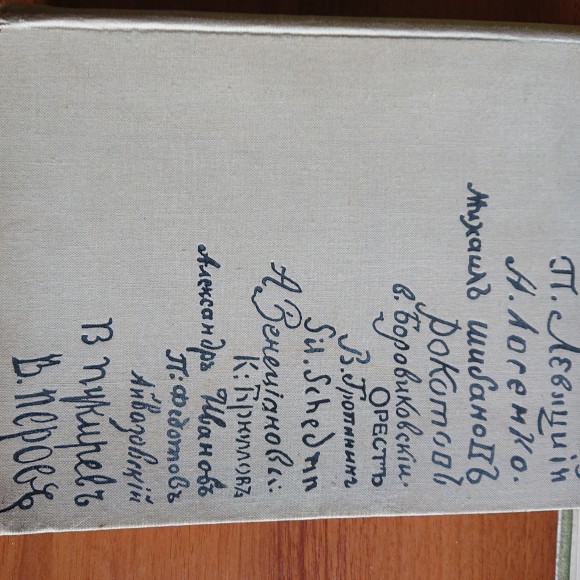 П. Левицкій
А. Лосенко.
Михаилъ Шибановъ
Рокотовъ
в. Боровиковскій.
Орестъ
В. Тропининъ
Sil. Schedrin
А. Венеціановъ.
К. Брюлловъ
Александръ Ивановъ
П. Федотовъ
Айвозовскій
В Пукиревъ
В. Перовъ